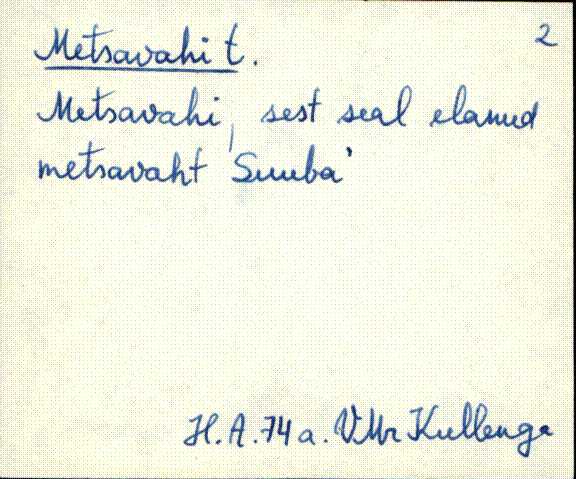 2
Metsavahi t.
Metsavahi, sest seal elanud
metsavaht
H.A. 74 a. VMr Kullenga